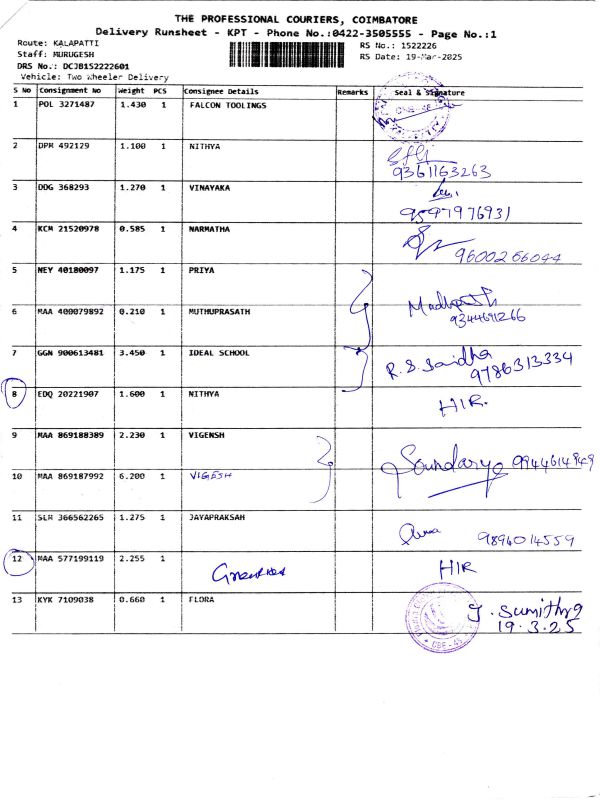 THE PROFESSIONAL COURIERS, COIMBATORE
Delivery Runsheet - KPT - Phone No.:0422-3505555 - Page No.:1
Route: KALAPATTI
Staff: MURUGESH
DRS No.: DCJB152222601
Vehicle: Two Wheeler Delivery
RS No.: 1522226
RS Date: 19-Mar-2025
S No Consignment No Weight PCS Consignee Details Remarks Seal & Signature
1 POL 3271487 1.430 1 FALCON TOOLINGS
2 DPR 492129 1.100 1 NITHYA 9361163263
3 DDG 368293 1.270 1 VINAYAKA 9597976931
4 KCM 21520978 0.585 1 NARMATHA 9600266044
5 NEY 40180097 1.175 1 PRIYA
6 MAA 400079892 0.210 1 MUTHUPRASATH 9344691266
7 GGN 900613481 3.450 1 IDEAL SCHOOL R.S. Saidha 9786313334
8 EDQ 20221907 1.600 1 NITHYA HIR.
9 MAA 869188389 2.230 1 VIGENSH Soundarya 9944614949
10 MAA 869187992 6.200 1 VIGESH
11 SLM 366562265 1.275 1 JAYAPRAKSAH 9894014559
12 MAA 577199119 2.255 1 HIR
13 KYK 7109038 0.660 1 FLORA J. Sumithra
19.3.25